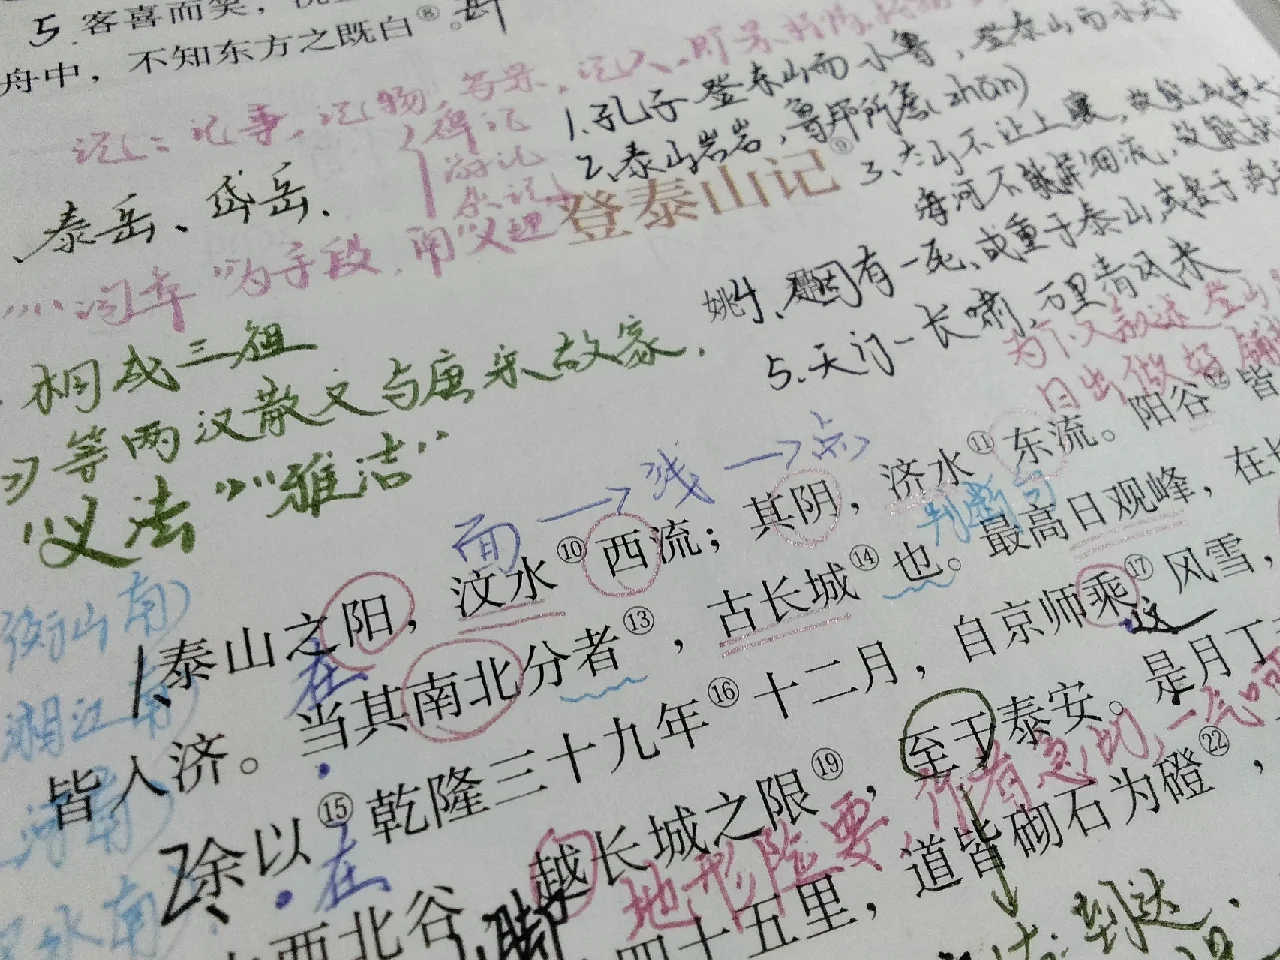 5.客喜而笑，
舟中，不知东方之既白⑧。
记：记事，记物，写景，记人，
碑记
游记
杂记
1.孔子登东山而小鲁，登泰山而小天
2.泰山岩岩，鲁邦所詹(zhān)
3.太山不让土壤，故能成其大
海河不择细流，故能就
泰岳、岱岳.
登泰山记⑨
为手段，用"义理
姚鼐
固有一死，或重于泰山或
5.天门一长啸，万里清风来
为下文叙述登山
日出做好铺
桐城三祖
等两汉散文与唐宋故家.
"义法""雅洁"
面→线→点
判断句
泰山之阳，汶水⑩西流；其阴，济水⑪东流。阳谷⑫皆
衡山南
湘江南
在
皆入济。当其南北分者⑬，古长城⑭也。最高日观峰，在长
2余以⑮乾隆三十九年⑯十二月，自京师乘⑰风雪，
在
这
西北谷，越长城之限⑲，至于泰安。是月丁
地形险要
行者急切，一气呵
脚
四十五里，道皆砌石为磴㉒，
到达.